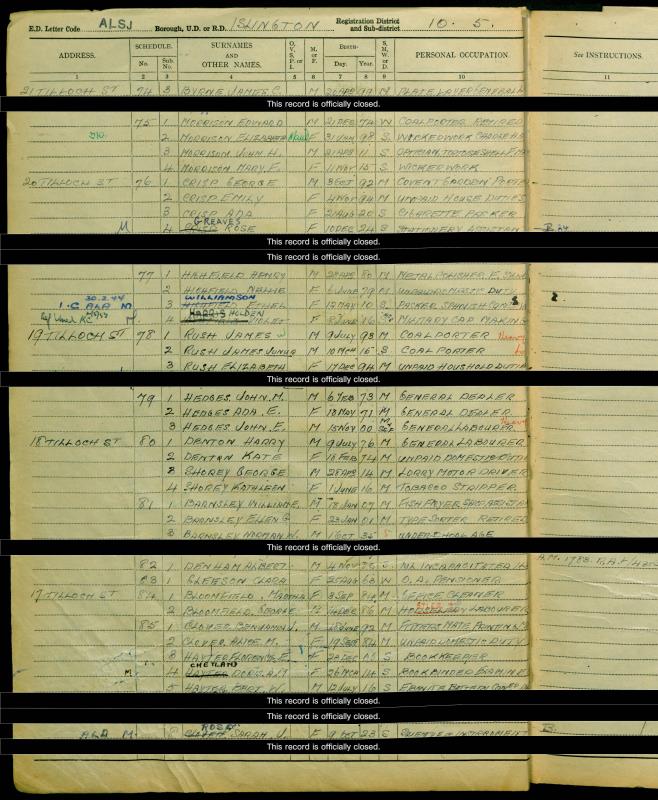 E.D. Letter Code ALSJ Borough, U.D. or R.D. ISLINGTON Registration District and Sub-district 10. 5.
ADDRESS. SCHEDULE. SURNAMES AND OTHER NAMES. O, V, S, P, or I M. or F. BIRTH- S, M, W, or D. PERSONAL OCCUPATION. See INSTRUCTIONS.
No. Sub. No. Day. Year.
1 2 3 4 5 6 7 8 9 10 11
21 TILLOCH ST 74 3 BYRNE JAMES C. M 26 APR 99 M PLATE LAYER GENERAL
This record is officially closed.
75 1 MORRISON EDWARD M 21 DEC 74 W COALPORTER RETIRED
2 MORRISON ELIZABETH F 31 JAN 98 S WICKEDWORK
3 MORRISON JOHN H. M 21 APR 11 S OPTICIAN, TORTOISE SHELL
4 MORRISON MARY, F. F 11 NOV 15 S WICKER WORK
20 TILLOCH ST 76 1 CRISP GEORGE M 8 OCT 92 M COVENT GARDEN PORTER
2 CRISP EMILY F 4 NOV 94 M UNPAID HOUSE DUTIES
3 CRISP ADA F 21 AUG 20 S CIGARETTE PACKER
GREAVES
M 4 CRISP ROSE F 10 DEC 24 S STATIONERY ASSISTANT
This record is officially closed.
This record is officially closed.
77 1 HIGHFIELD HENRY M 28 APR 80 M METAL POLISHER
2 HIGHFIELD NELLIE F 6 JUNE 79 M UNPAID DOMESTIC DUTY
30.2.44 WILLIAMSON
3 HIGHFIELD ETHEL F 12 MAY 10 S PACKER SPANISH
HARRIS HOLDEN
4 VIOLET F JUNE 16 MILITARY CAP MAKING
19 TILLOCH ST 78 1 RUSH JAMES M 9 JULY 93 M COAL PORTER Heavy
2 RUSH JAMES JUNIOR M 10 MCH 16 S COAL PORTER
3 RUSH ELIZABETH F 17 DEC 94 M UNPAID HOUSHOLD DUTIES
This record is officially closed.
79 1 HEDGES JOHN, M. M 6 FEB 73 M GENERAL DEALER
2 HEDGES ADA, E. F 18 MAY 71 M GENERAL DEALER
3 HEDGES JOHN, E. M 15 NOV 00 GENERAL LABOURER Heavy
18 TILLOCH ST 80 1 DENTON HARRY M 9 JULY 76 M GENERAL LABOURER
2 DENTON KATE F 18 FEB 74 M UNPAID DOMESTIC DUTIES
3 SHOREY GEORGE M 28 APR 14 M LORRY MOTOR DRIVER
4 SHOREY KATHLEEN F 1 JUNE 16 M TOBACCO STRIPPER
81 1 BARNSLEY WILLIAM E, M 18 JAN 07 M FISH FRYER SHOP ASSISTANT
2 BARNSLEY ELLEN G F 23 JAN 01 M TYPE SORTER RETIRED
3 BARNSLEY NORMAN W. M 1 OCT 35 S UNDER SCHOOL AGE
This record is officially closed.
82 1 DENHAM ALBERT M 4 NOV S INCAPACITATED
83 1 GLEESON CLARA F 25 AUG 68 W O.A. PENSIONER
17 TILLOCH ST 84 1 BLOOMFIELD, MARTHA F 8 SEP M OFFICE CLEANER
2 BLOOMFIELD, GEORGE M 4 DEC 86 M LABOURER
85 1 CLOVER BENJAMIN J. M JUNE 92 M FITTERS MATE PRINTING
2 CLOVER, ALICE M. F 19 SEP 84 M UNPAID DOMESTIC DUTY
3 HAYTER FLORENCE E F 23 DEC S BOOK KEEPER
CHEYLAND
M. 4 HAYTER DORIS A.M F 26 MCH 14 S BOOKBINDER EXAMINER
5 HAYTER BERT. W. M 12 JULY 16 S EBONITE
This record is officially closed.
This record is officially closed.
M. 8 SARAH, J. F 9 OCT 23 S INSTRUMENT B.
This record is officially closed.